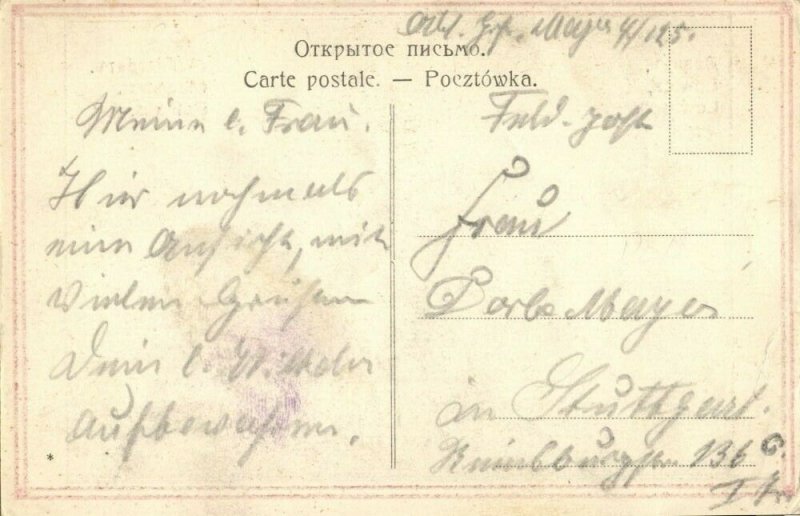 Mayer 4/125.
Открытое письмо.
Carte postale. — Pocztówka.
Meine l. Frau.
Hier nochmals
eine Ansicht, mit
vielen Grüßen
Dein l.
aufbewahren.
Feld-post
Frau
Mayer
in Stuttgart.
136